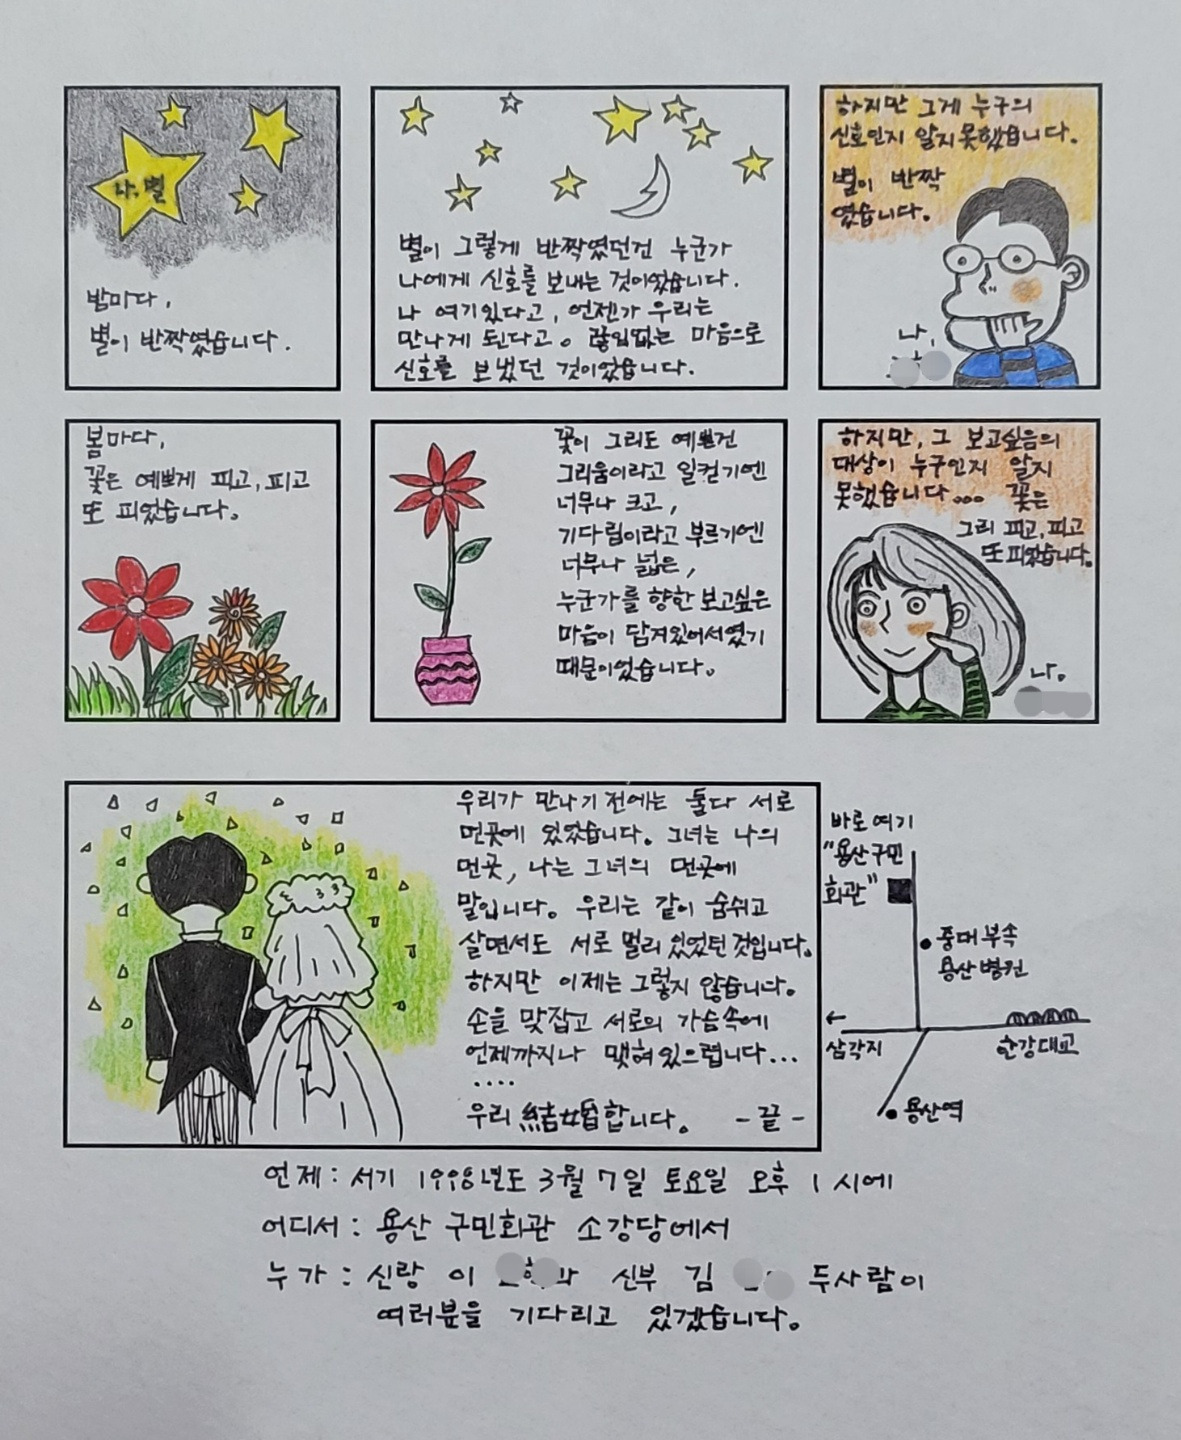 나, 별
밤마다,
별이 반짝였습니다.
별이 그렇게 반짝였던건 누군가
나에게 신호를 보내는 것이었습니다.
나 여기있다고, 언젠가 우리는
만나게 된다고. 끊임없는 마음으로
신호를 보냈던 것이었습니다.
하지만 그게 누구의
신호인지 알지못했습니다.
별이 반짝
였습니다.
나,
봄마다,
꽃은 예쁘게 피고, 피고
또 피었습니다.
꽃이 그리도 예쁜건
그리움이라고 일컫기엔
너무나 크고,
기다림이라고 부르기엔
너무나 넓은,
누군가를 향한 보고싶은
마음이 담겨있어서였기
때문이었습니다.
하지만, 그 보고싶음의
대상이 누구인지 알지
못했습니다... 꽃은
그리 피고, 피고
또 피었습니다.
나.
우리가 만나기 전에는 둘다 서로
먼곳에 있었습니다. 그녀는 나의
먼곳, 나는 그녀의 먼곳에
말입니다. 우리는 같이 숨쉬고
살면서도 서로 멀리 있었던 것입니다.
하지만 이제는 그렇지 않습니다.
손을 맞잡고 서로의 가슴속에
언제까지나 맺혀있으렵니다...
....
우리 結婚합니다. -끝-
바로 여기
"용산구민
회관"
중대 부속
용산병원
←
삼각지
한강대교
용산역
언제: 서기 1998년도 3월 7일 토요일 오후 1시에
어디서: 용산 구민회관 소강당에서
누가: 신랑 이 과 신부 김 두사람이
여러분을 기다리고 있겠습니다.